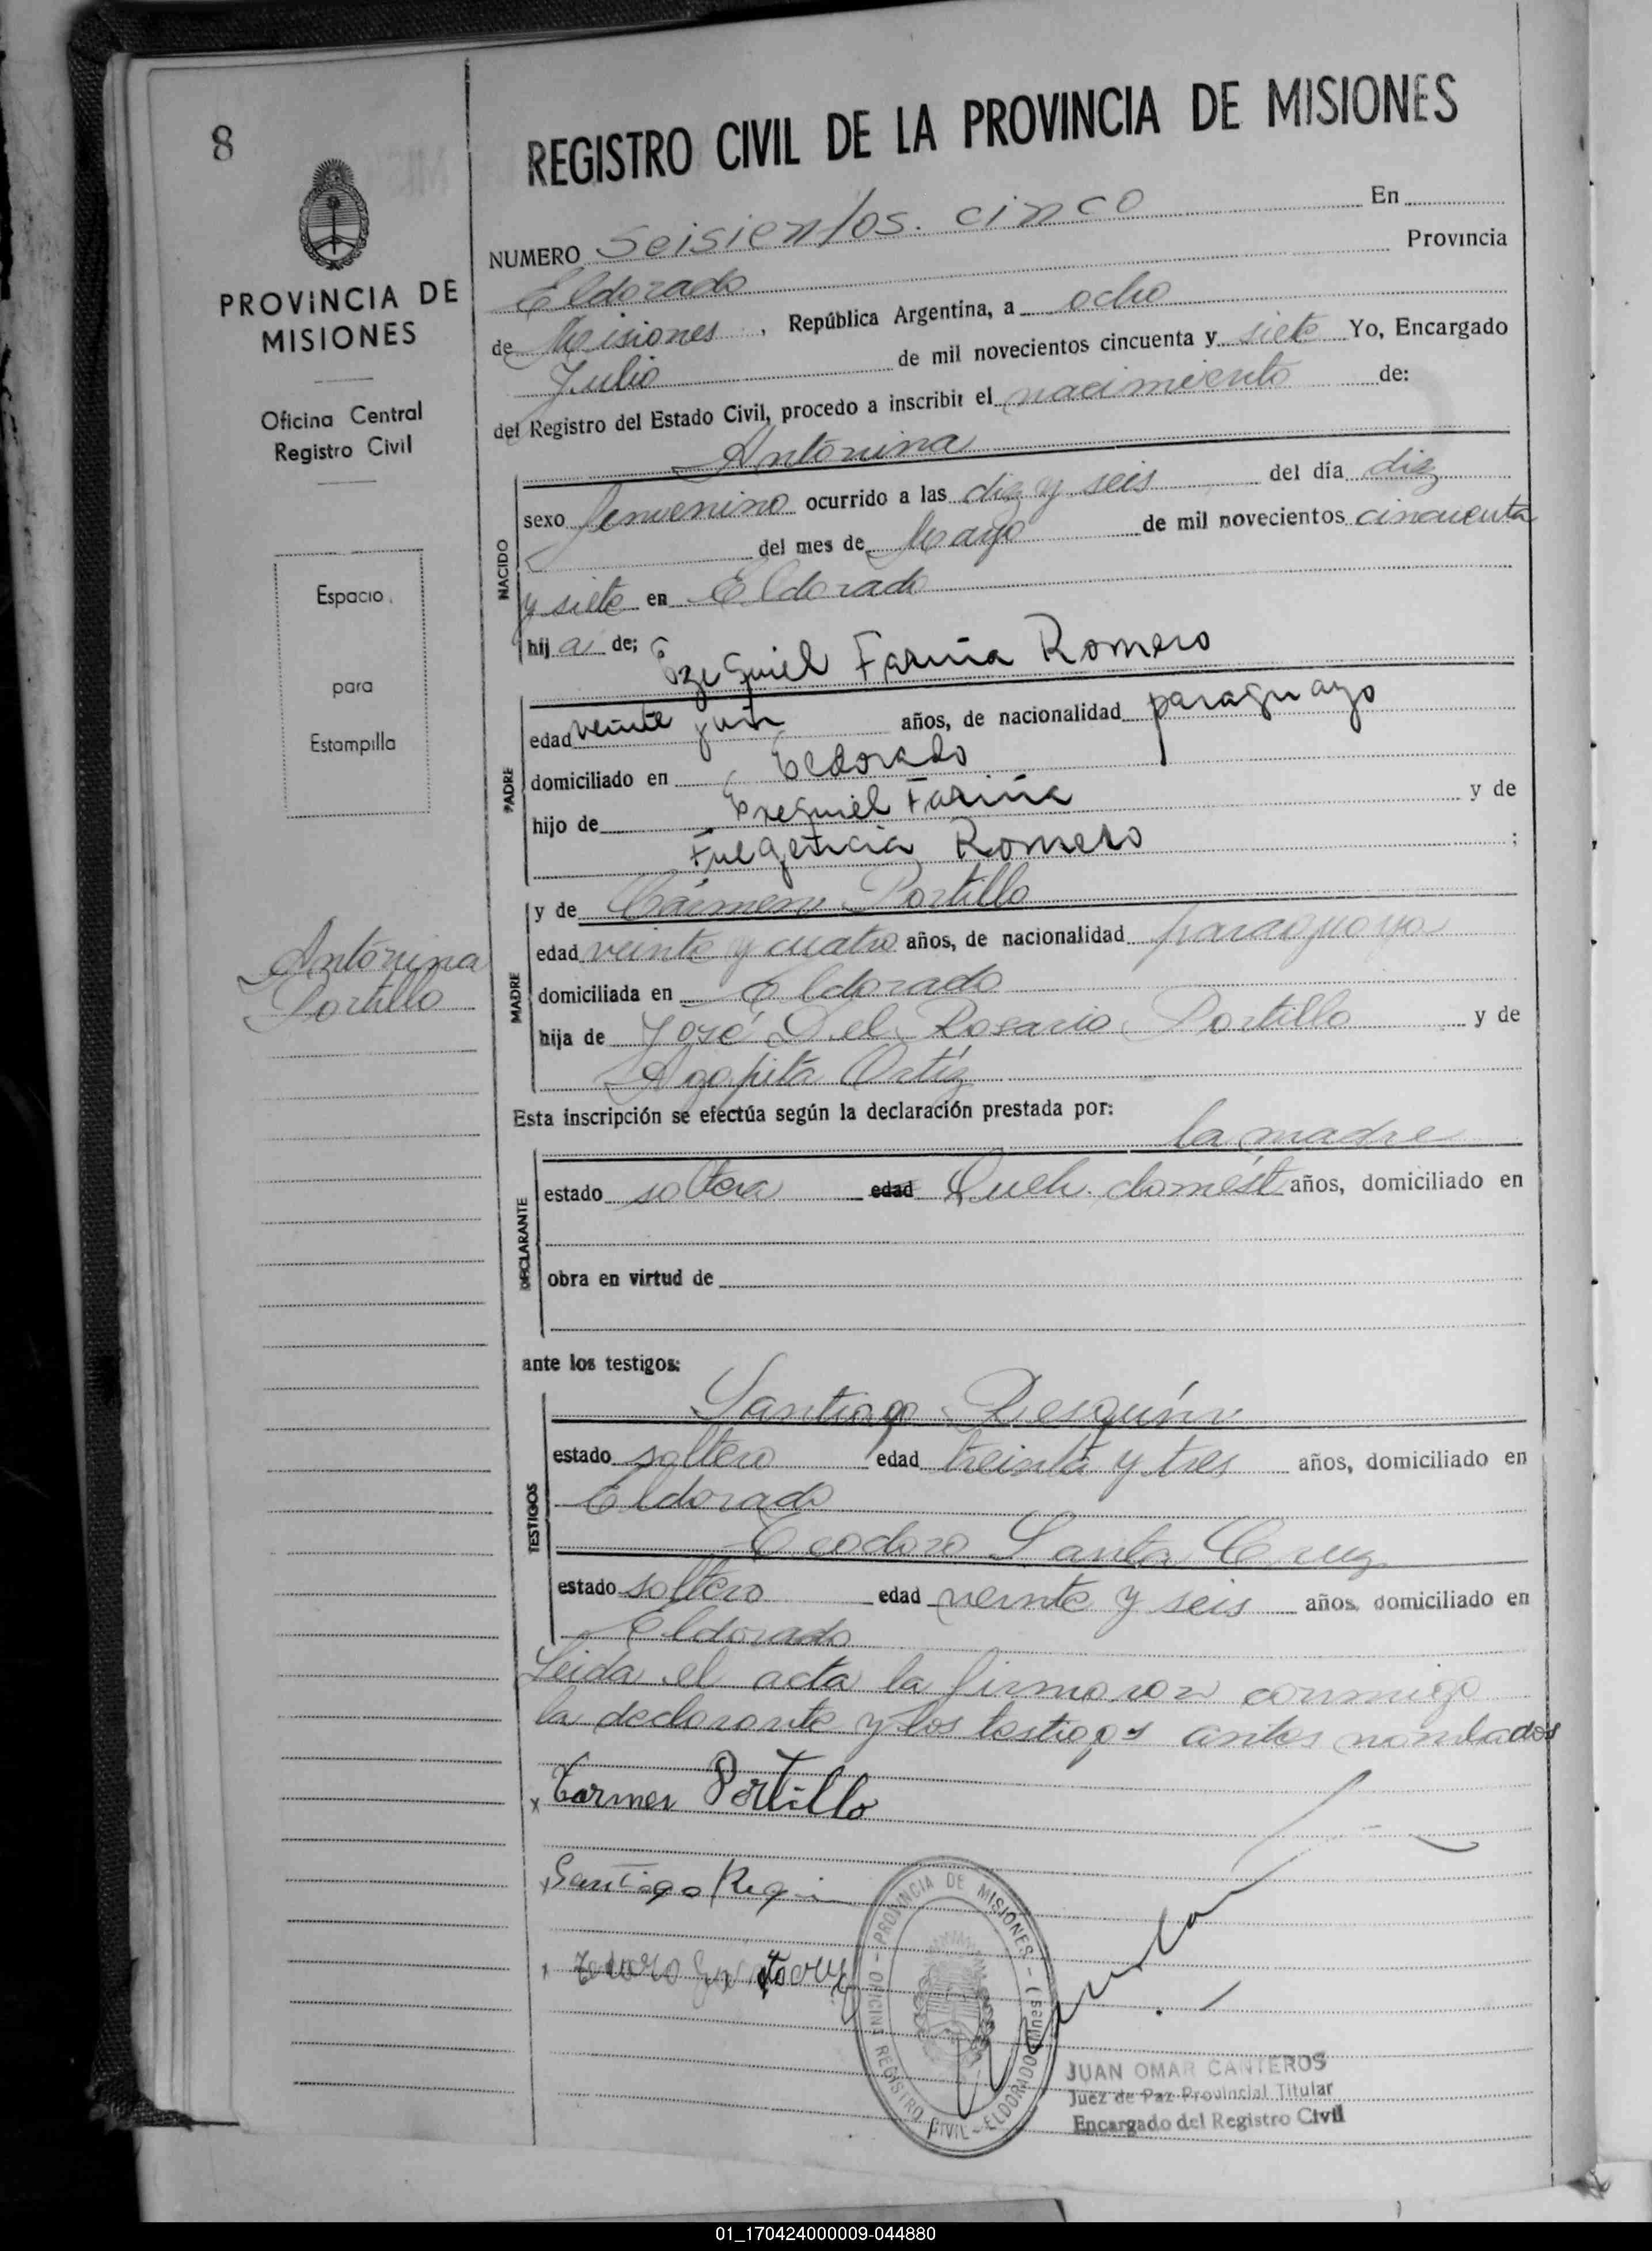 8
PROVINCIA DE
MISIONES
Oficina Central
Registro Civil
Espacio
para
Estampilla
Antonina
Portillo
REGISTRO CIVIL DE LA PROVINCIA DE MISIONES
NUMERO Seisientos. cinco En
Eldorado Provincia
de Misiones, República Argentina, a ocho
Julio de mil novecientos cincuenta y siete Yo, Encargado
del Registro del Estado Civil, procedo a inscribir el nacimiento de:
Antonina
NACIDO
sexo femenino ocurrido a las diez y seis del día diez
del mes de Mayo de mil novecientos cincuenta
y siete en Eldorado
hija de; Ezequiel Fariña Romero
PADRE
edad veinte años, de nacionalidad paraguayo
domiciliado en Eldorado
hijo de Ezequiel Fariña y de
Fulgencia Romero ;
MADRE
y de Cármen Portillo
edad veinte y cuatro años, de nacionalidad paraguaya
domiciliada en Eldorado
hija de José Del Rosario Portillo y de
Agapita Ortíz
Esta inscripción se efectúa según la declaración prestada por:
la madre
DECLARANTE
estado soltera edad domést años, domiciliado en
obra en virtud de
ante los testigos:
TESTIGOS
Santiago
estado soltero edad treinta y tres años, domiciliado en
Eldorado
Teodoro Santa Cruz
estado soltero edad veinte y seis años, domiciliado en
Eldorado
Leida el acta la firmaron conmigo
la declarante y los testigos antes nombrados
x Carmen Portillo
Santiago
x
PROVINCIA DE MISIONES - OFICINA REGISTRO CIVIL - ELDORADO (Mnes)
JUAN OMAR CANTEROS
Juez de Paz Provincial Titular
Encargado del Registro Civil
01_170424000009-044880